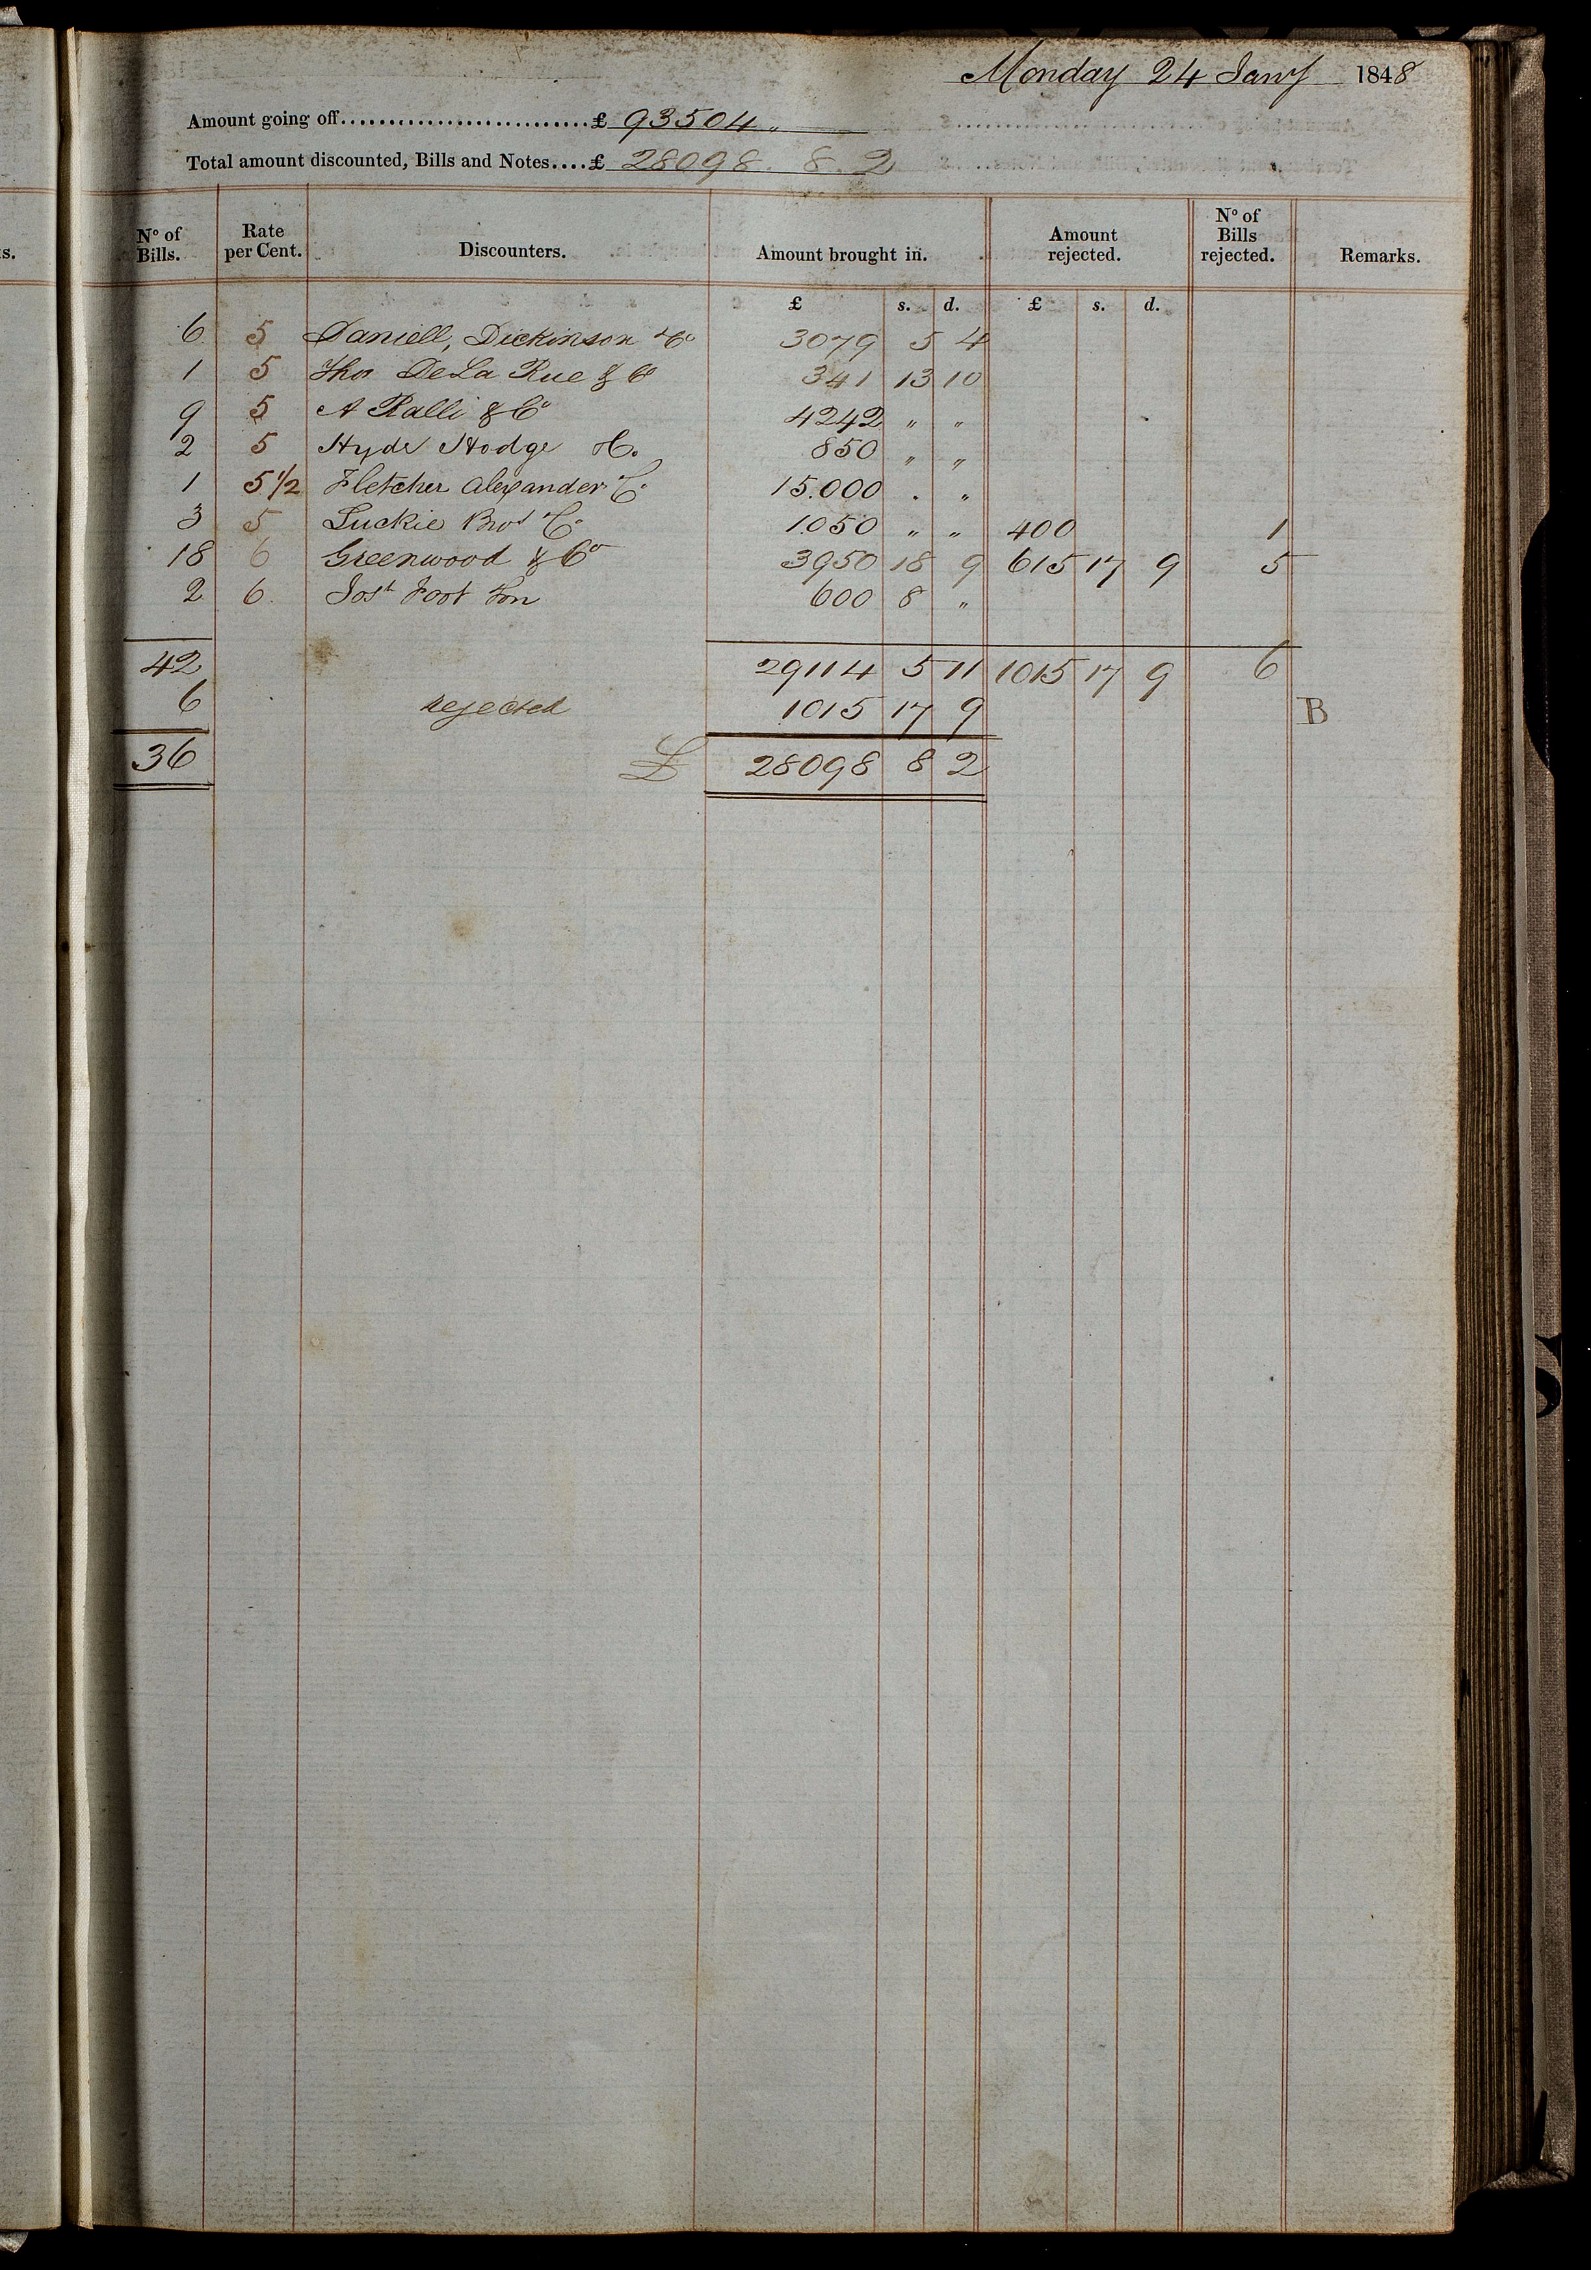 Monday 24 Jany 1848
Amount going off...........................£ 93504 "
Total amount discounted, Bills and Notes....£ 28098. 8. 2
s.
No of Bills. Rate per Cent. Discounters. Amount brought in. Amount rejected. No of Bills rejected. Remarks.
£ s. d. £ s. d.
6 5 Daniell, Dickinson & Co 3079 5 4
1 5 Thos De La Rue & Co 341 13 10
9 5 A Ralli & Co 4242 " "
2 5 Hyde Hodge & Co. 850 " "
1 5 1/2 Fletcher Alexander & Co. 15.000 . "
3 5 Luckie Bros & Co. 1050 " " 400 1
18 6 Greenwood & Co 3950 18 9 615 17 9 5
2 6. Josh Foot Son 600 8 "
42 29114 5 11 1015 17 9 6
6 rejected 1015 17 9 B
36 £ 28098 8 2